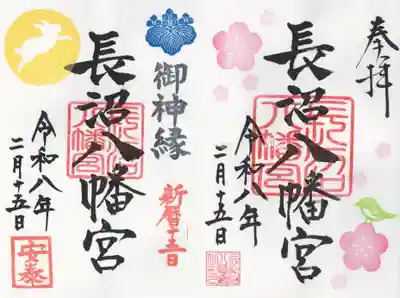 奉拝
長沼八幡宮
令和八年
二月十五日
御神縁
新暦十五日
長沼八幡宮
令和八年
二月十五日
安泰